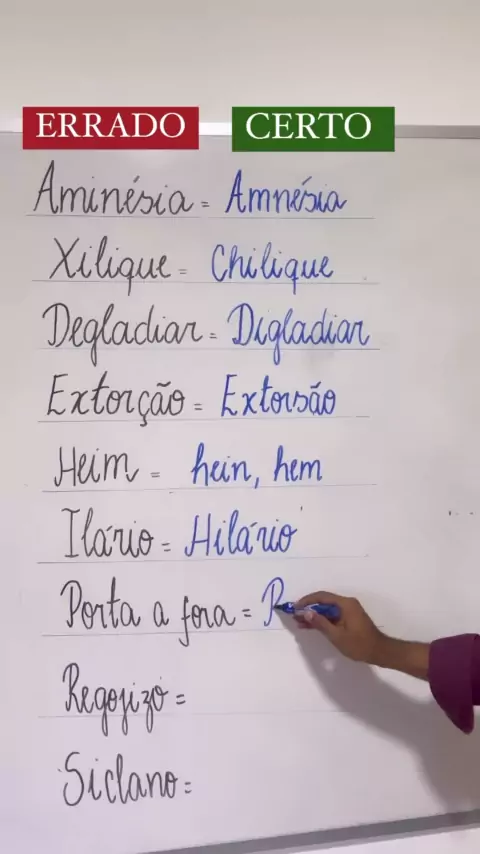 ERRADO CERTO
Aminésia = Amnésia
Xilique = Chilique
Degladiar = Digladiar
Extorção = Extorsão
Heim = hein, hem
Ilário = Hilário
Porta a fora = P
Regojizo =
Siclano =